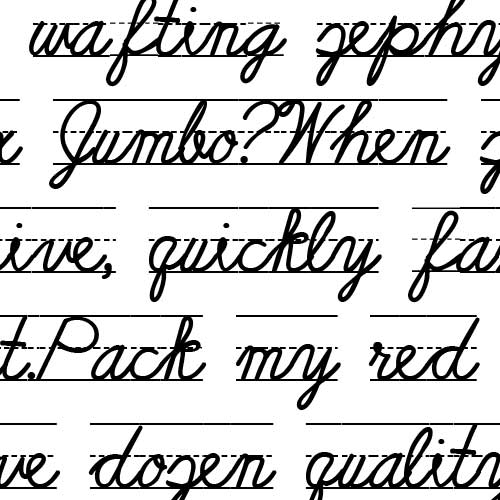 wafting zephy
x Jumbo?When z
ive, quickly fa
t.Pack my red
ve dozen quality